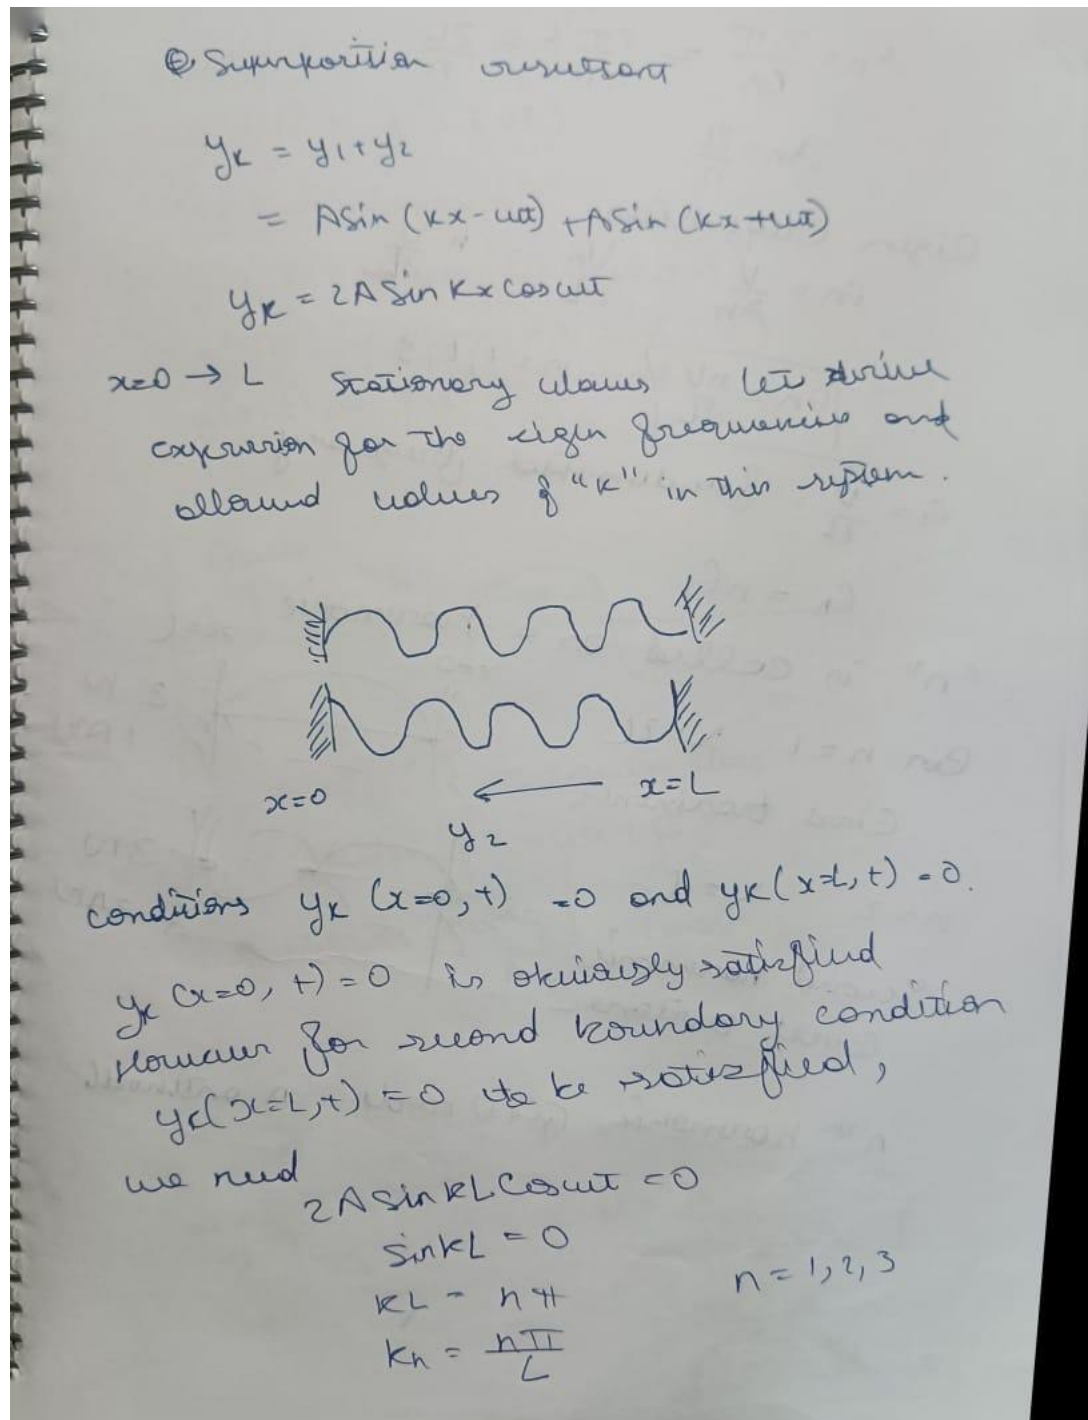 Superposition resultant
yK = y1 + y2
= A Sin (Kx - ωt) + A Sin (Kx + ωt)
yK = 2A Sin Kx cos ωt
x=0 → L Stationary waves let derive
expression for the eigen frequencies and
allowed values of "K" in this system.
x=0 x=L
y2
conditions yK (x=0, t) = 0 and yK (x=L, t) = 0.
yK (x=0, t) = 0 is obviously satisfied
However for second boundary condition
yK(x=L, t) = 0 to be satisfied,
we need
2A Sin KL Cos ωt = 0
Sin KL = 0
KL = nπ n = 1, 2, 3
Kn = nπ/L